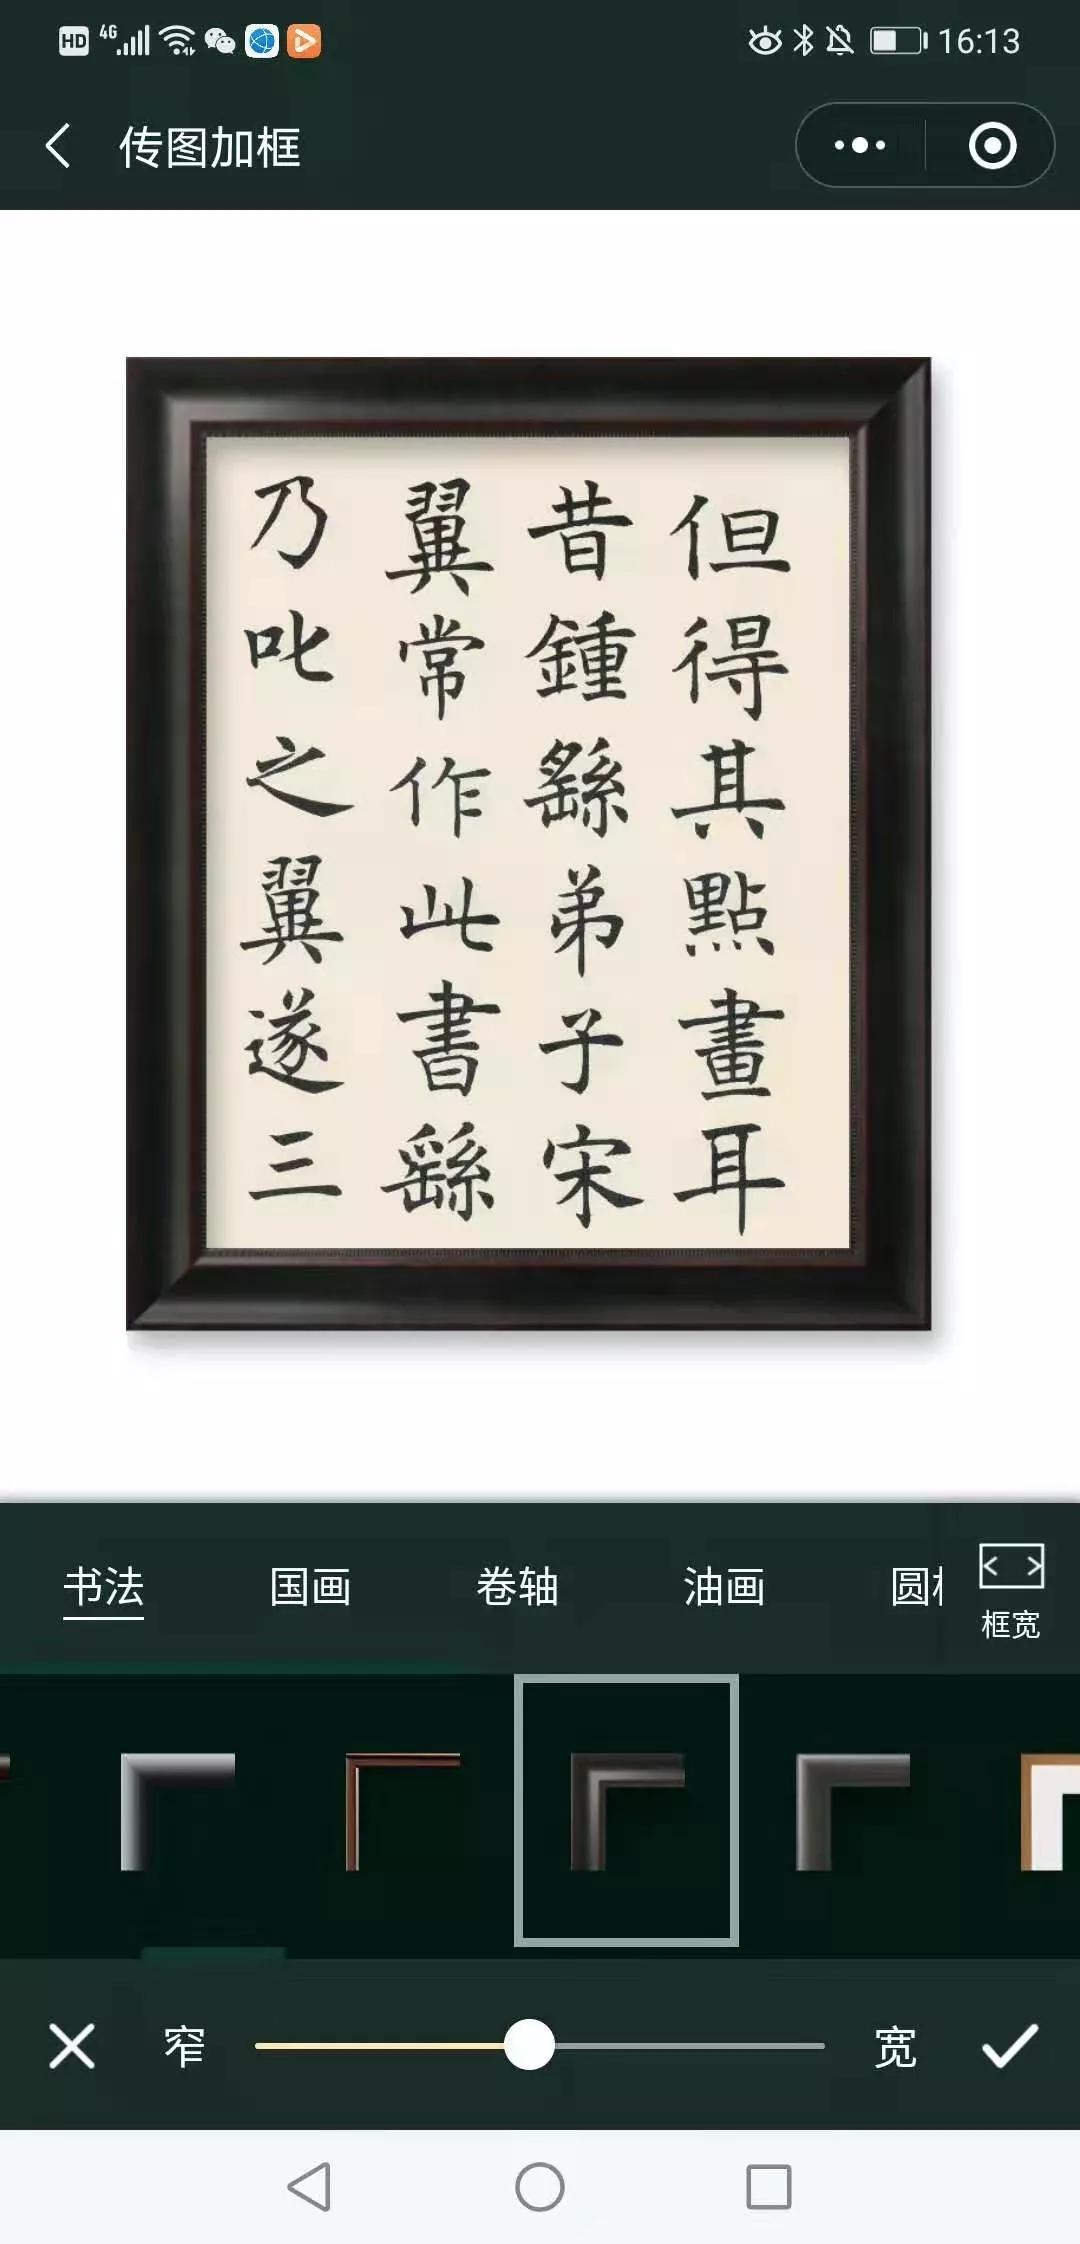 HD 4G 16:13
传图加框
但得其點畫耳
昔鍾繇弟子宋
翼常作此書繇
乃叱之翼遂三
书法 国画 卷轴 油画 圆
框宽
窄 宽